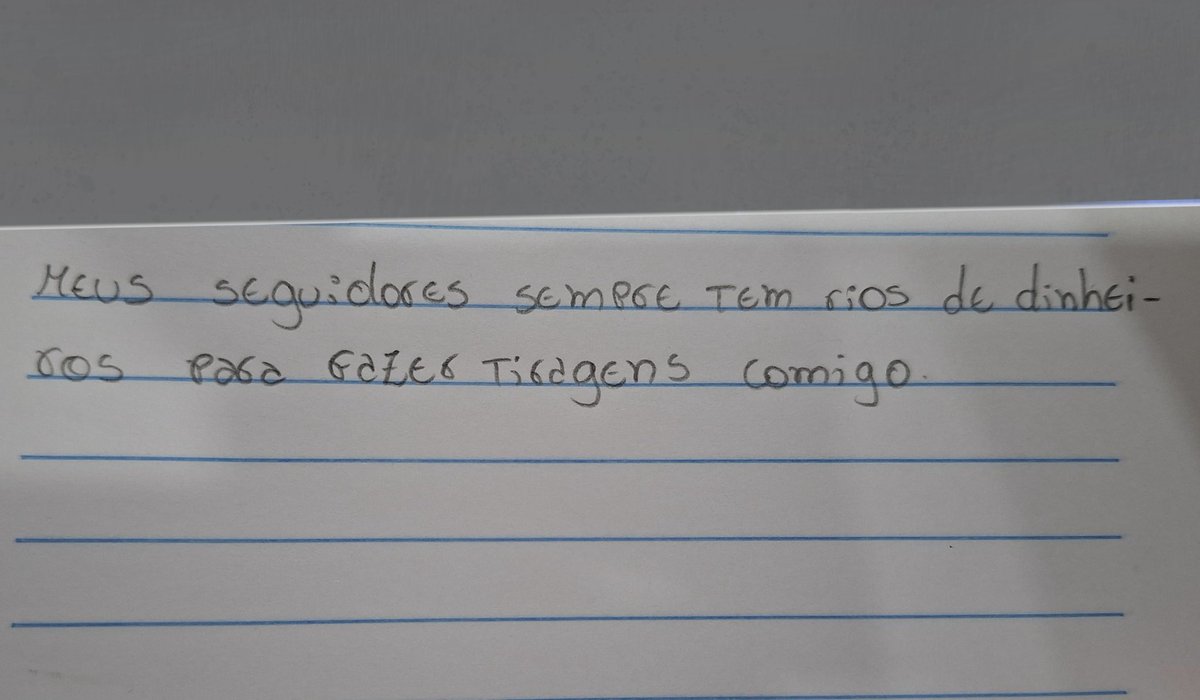 Meus seguidores sempre tem rios de dinhei-
ros para fazer tiragens comigo.